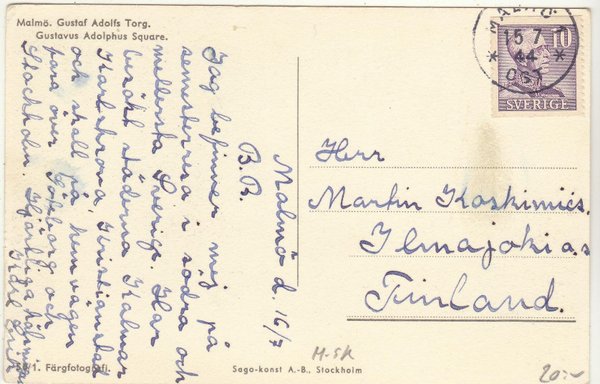 Malmö. Gustaf Adolfs Torg.
Gustavus Adolphus Square.
MALMÖ
15 7
44
ÖST
10
SVERIGE
Malmö d. 16/7
B.B.
Jag befinner mej på
semesterresa i södra och
mellersta Sverige. Har
besökt städerna Kalmar
Karlskrona, Kristianstad
och skall på hemvägen
fara över Göteborg och
Stockholm. Hjärtliga hälsnin
Karl Erik
Herr
Martin Koskimies.
Ilmajoki as
Finland.
1. Färgfotografi.
Sago-konst A.-B., Stockholm
M-SK
20:-